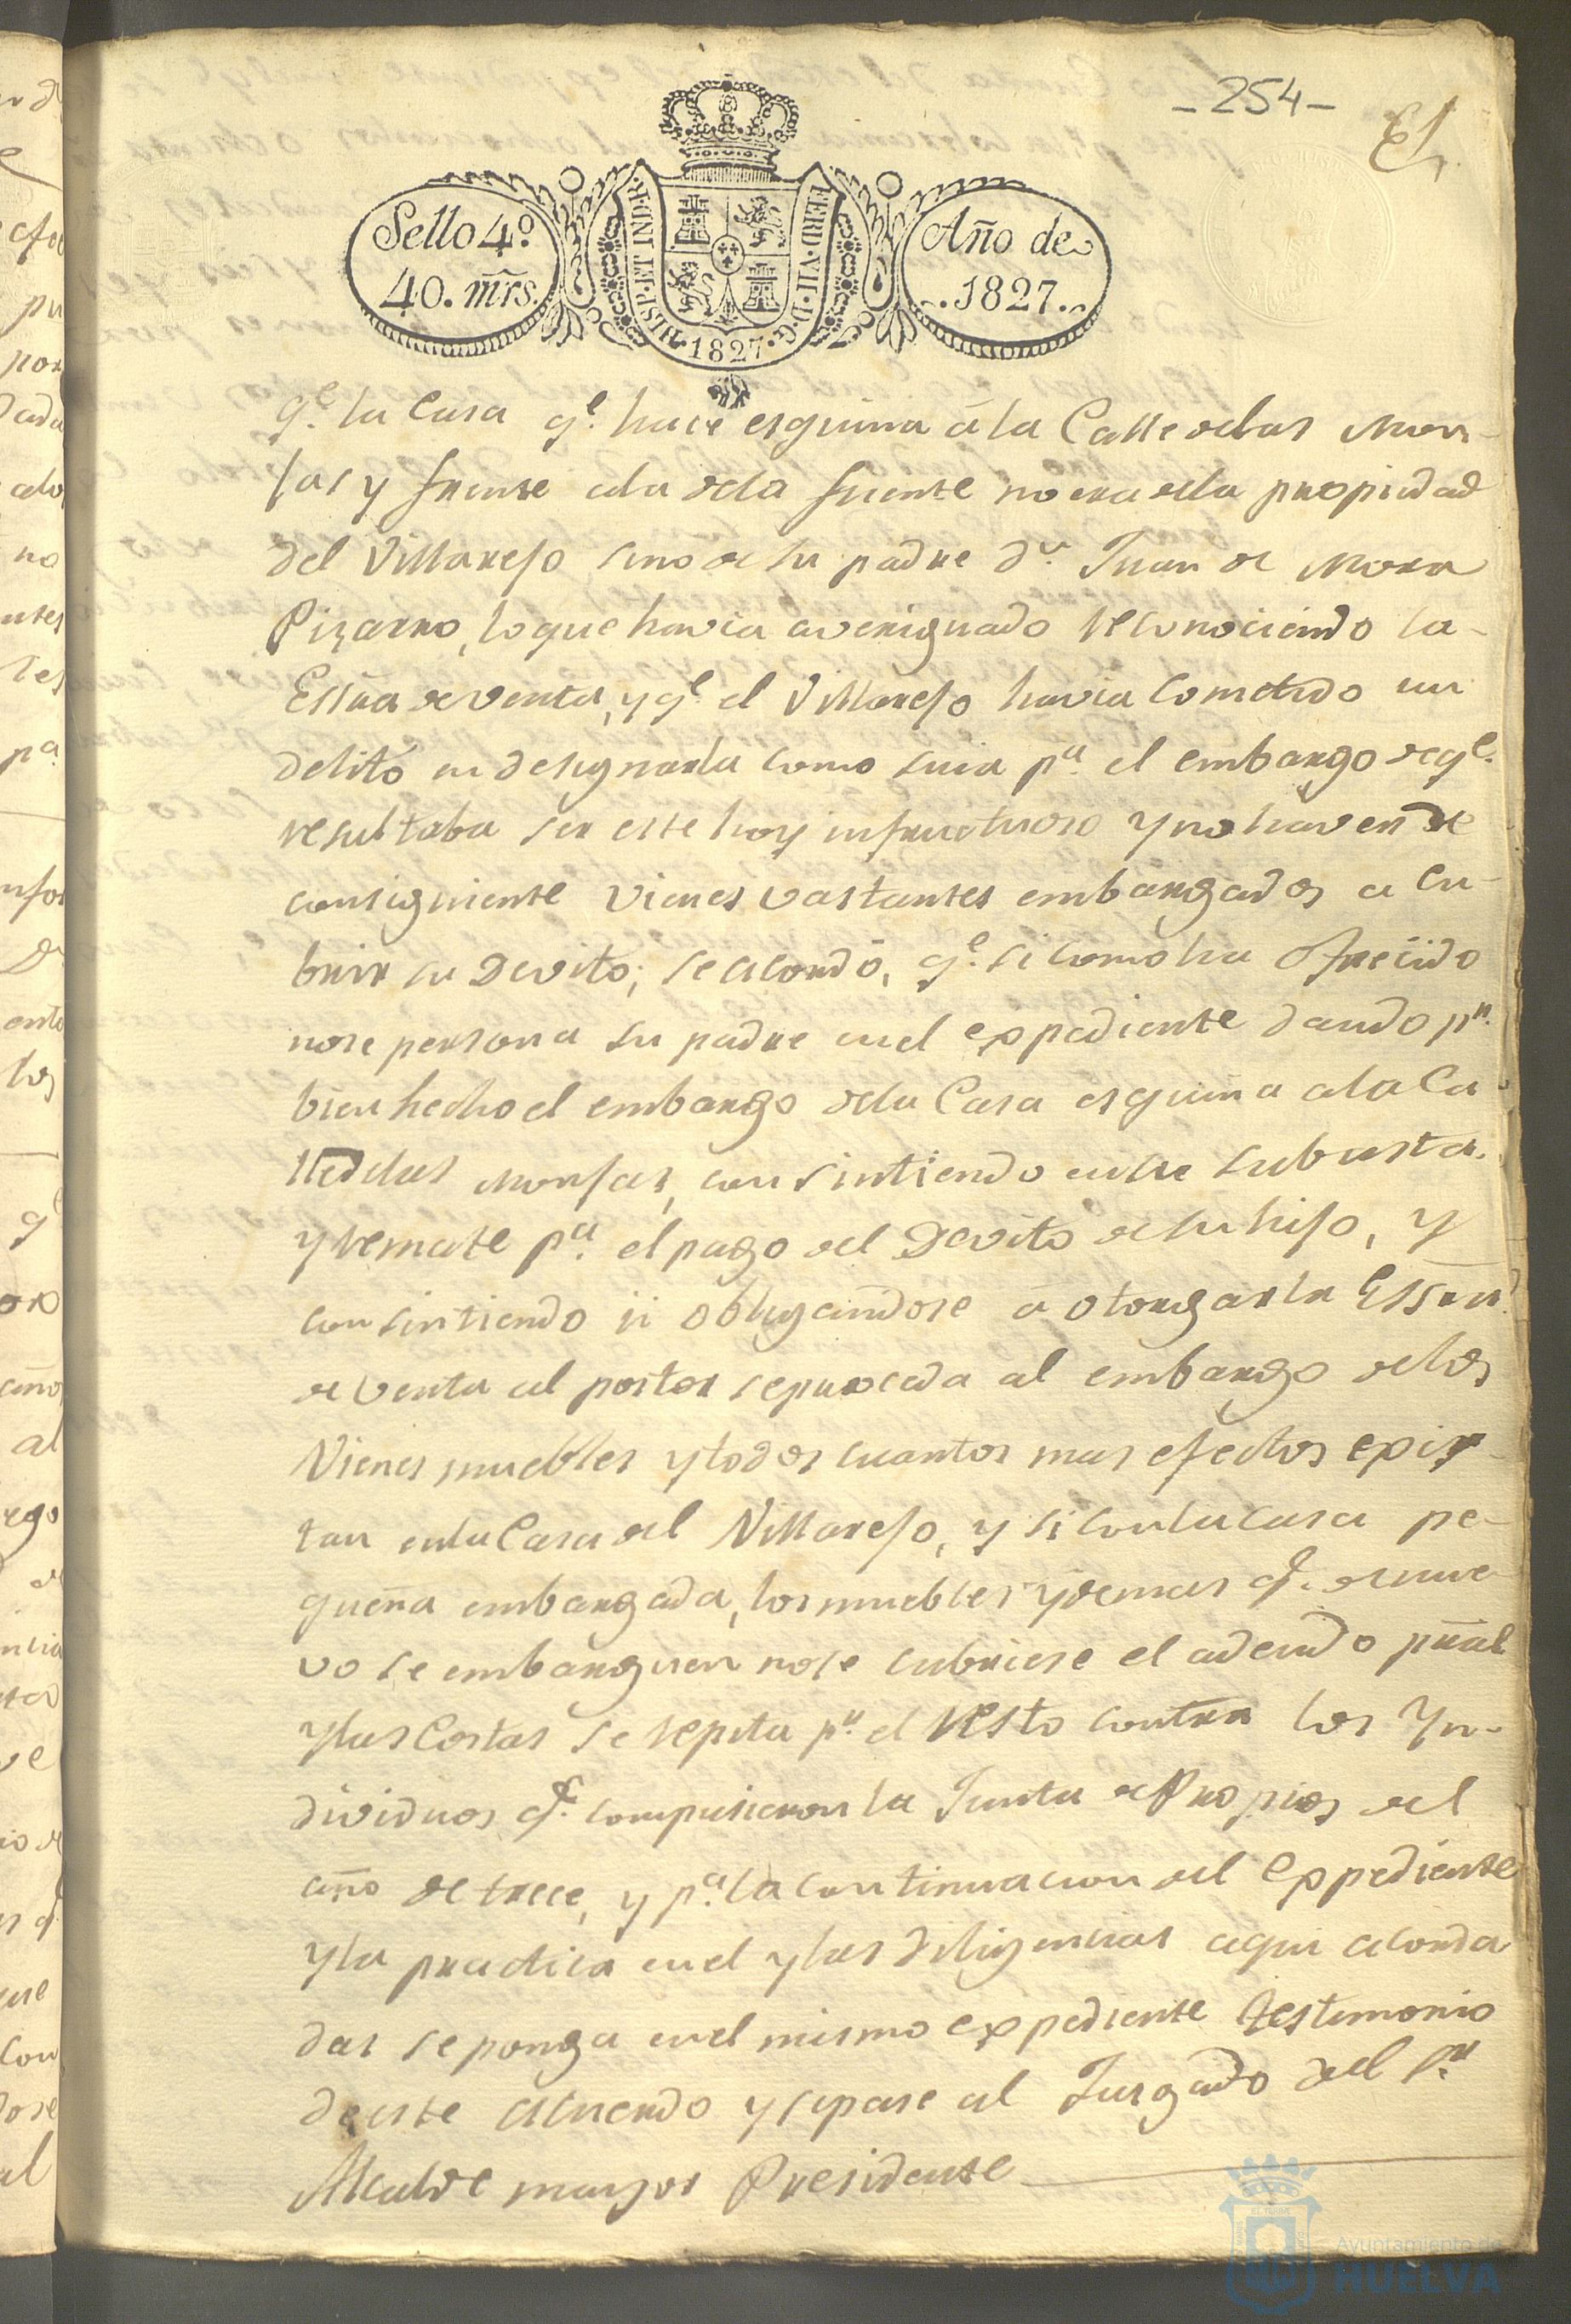 - 254 -
Sello 4º.
40. mrs.
HISP. ET IND. R.
FERD. VII. D. G.
1827
Año de
1827.
q.e la Casa q.e hace esquina á la Calle delas Mon-
jas y frente ala dela fuente no era dela propiedad
del Villarejo sino de su padre d.n Juan de Mora
Pizarro, lo que havia averiguado reconociendo la
Essra de venta, y q.e el Villarejo havia cometido un
delito en designarla como suia p.a el embargo de q.e
resultaba ser este hoy infructuoso y no haver de
consiguiente vienes vastantes embargados a cu-
brir su Devito; se acordó, q.e si como ha ofrecido
nose persona su padre en el expediente dando p.r
bien hecho el embargo dela Casa esquina ala Ca
lle delas Monjas, consintiendo en su subasta
y remate p.a el pago del Devito de su hijo, y
consintiendo ii obligandose á otorgar la Essra
de venta al postor se proceda al embargo delos
Vienes muebles y todos cuantos mas efectos exis-
tan en la Casa del Villarejo, y si con la casa pe-
queña embargada, los muebles y demas q.e de nue-
vo se embarguen nose cubriese el adeudo pral
y las Costas se repita p.r el resto contra los Yn-
dividuos q.e compusieron la Junta de Propios del
año de trece, y p.a la continuacion del Expediente
y la practica en el y las diligencias aqui acorda
das se ponga en el mismo expediente testimonio
de este acuerdo y se pase al Jurgado del S.r
Alcalde mayor Presidente
Ayuntamiento de
HUELVA